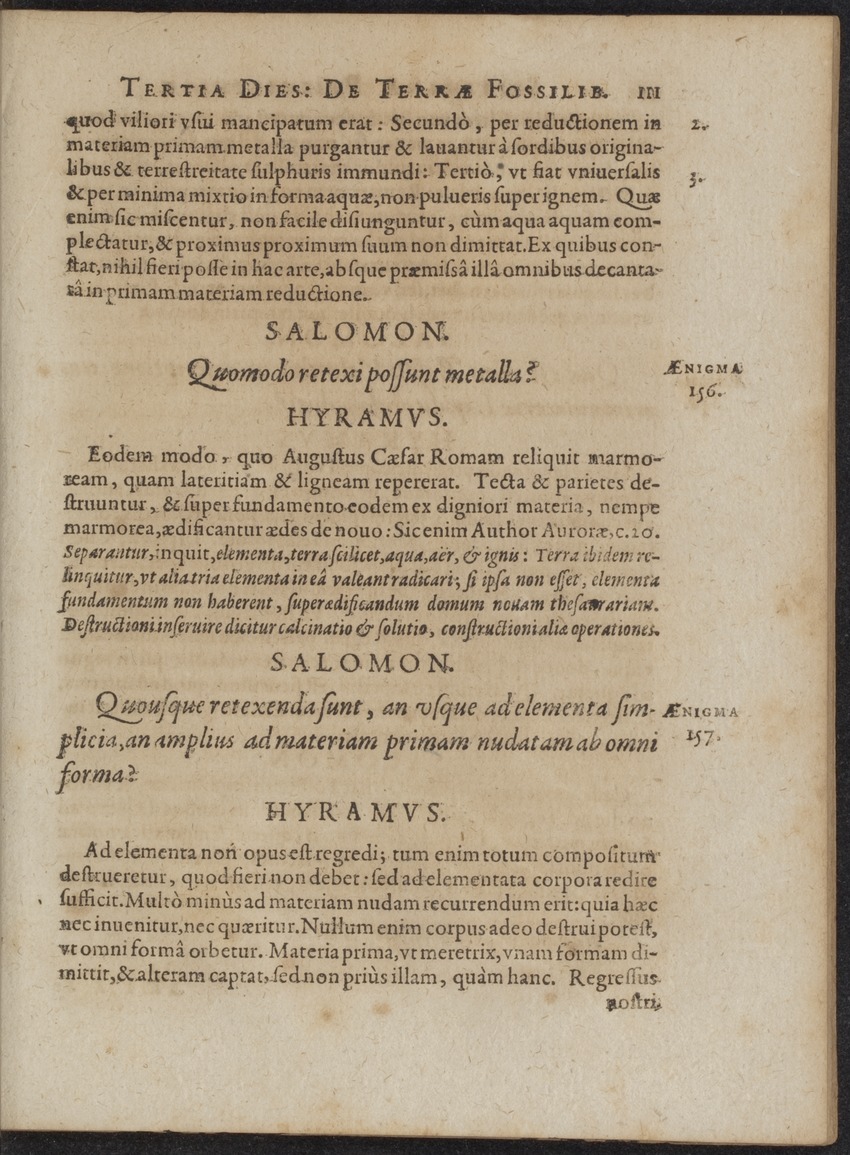 TERTIA DIES: DE TERRÆ FOSSILIB. 111
quod viliori vſui mancipatum erat: Secundò, per reductionem in 2.
materiam primam metalla purgantur & lauantur à ſordibus origina-
libus & terreſtreitate ſulphuris immundi: Tertiò, vt fiat vniuerſalis 3.
& per minima mixtio in forma aquæ, non pulueris ſuper ignem. Quæ
enim ſic miſcentur, non facile diſiunguntur, cùm aqua aquam com-
plectatur, & proximus proximum ſuum non dimittat. Ex quibus con-
ſtat, nihil fieri poſſe in hac arte, abſque præmiſsâ illâ omnibus decanta-
tâ in primam materiam reductione.
SALOMON.
Quomodo retexi poſſunt metalla? ÆNIGMA
156.
HYRAMVS.
Eodem modo, quo Auguſtus Cæſar Romam reliquit marmo-
ream, quam lateritiam & ligneam repererat. Tecta & parietes de-
ſtruuntur, & ſuper fundamento eodem ex digniori materia, nempe
marmorea, ædificantur ædes de nouo: Sic enim Author Auroræ, c. 20.
Separantur, inquit, elementa, terra ſcilicet, aqua, aër, & ignis: Terra ibidem re-
linquitur, vt alia tria elementa in eâ valeant radicari; ſi ipſa non eſſet, elementa
fundamentum non haberent, ſuperædificandum domum nouam theſaurariam.
Deſtructioni inſeruire dicitur calcinatio & ſolutio, conſtructioni aliæ operationes.
SALOMON.
Quouſque retexenda ſunt, an vſque ad elementa ſim- ÆNIGMA
plicia, an amplius ad materiam primam nudatam ab omni 157.
forma?
HYRAMVS.
Ad elementa non opus eſt regredi; tum enim totum compoſitum
deſtrueretur, quod fieri non debet: ſed ad elementata corpora redire
ſufficit. Multò minùs ad materiam nudam recurrendum erit: quia hæc
nec inuenitur, nec quæritur. Nullum enim corpus adeo deſtrui poteſt,
vt omni formâ orbetur. Materia prima, vt meretrix, vnam formam di-
mittit, & alteram captat, ſed non priùs illam, quàm hanc. Regreſſus
noſtri